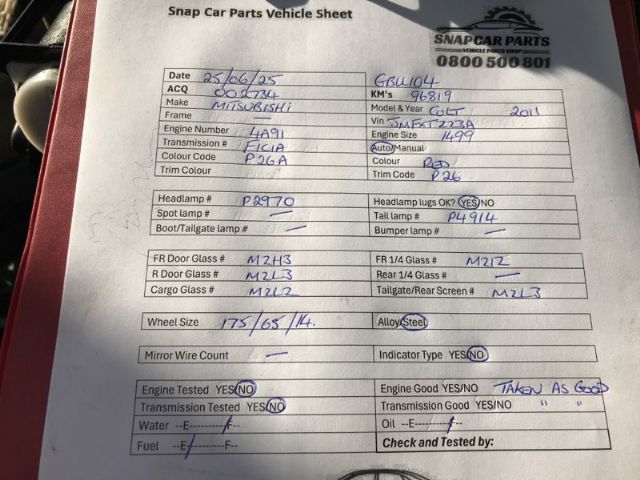 Snap Car Parts Vehicle Sheet
SNAPCAR PARTS
VEHICLE PARTS SHOP
0800 500 801
Date 25/06/25 GBW104
ACQ 002734 KM's 96819
Make MITSUBISHI Model & Year COLT 2011
Frame — Vin JMFXTZ23A
Engine Number 4A91 Engine Size 1499
Transmission # F1C1A Auto/Manual
Colour Code P26A Colour RED
Trim Colour Trim Code P26
Headlamp # P2970 Headlamp lugs OK? YES/NO
Spot lamp # — Tail lamp # P4914
Boot/Tailgate lamp # — Bumper lamp # —
FR Door Glass # M2H3 FR 1/4 Glass # M2I2
R Door Glass # M2L3 Rear 1/4 Glass # —
Cargo Glass # M2L2 Tailgate/Rear Screen # M2L3
Wheel Size 175/65/14. Alloy/Steel
Mirror Wire Count — Indicator Type YES/NO
Engine Tested YES/NO Engine Good YES/NO TAKEN AS GOOD
Transmission Tested YES/NO Transmission Good YES/NO " "
Water --E----------F-- Oil --E----------F--
Fuel --E----------F-- Check and Tested by: